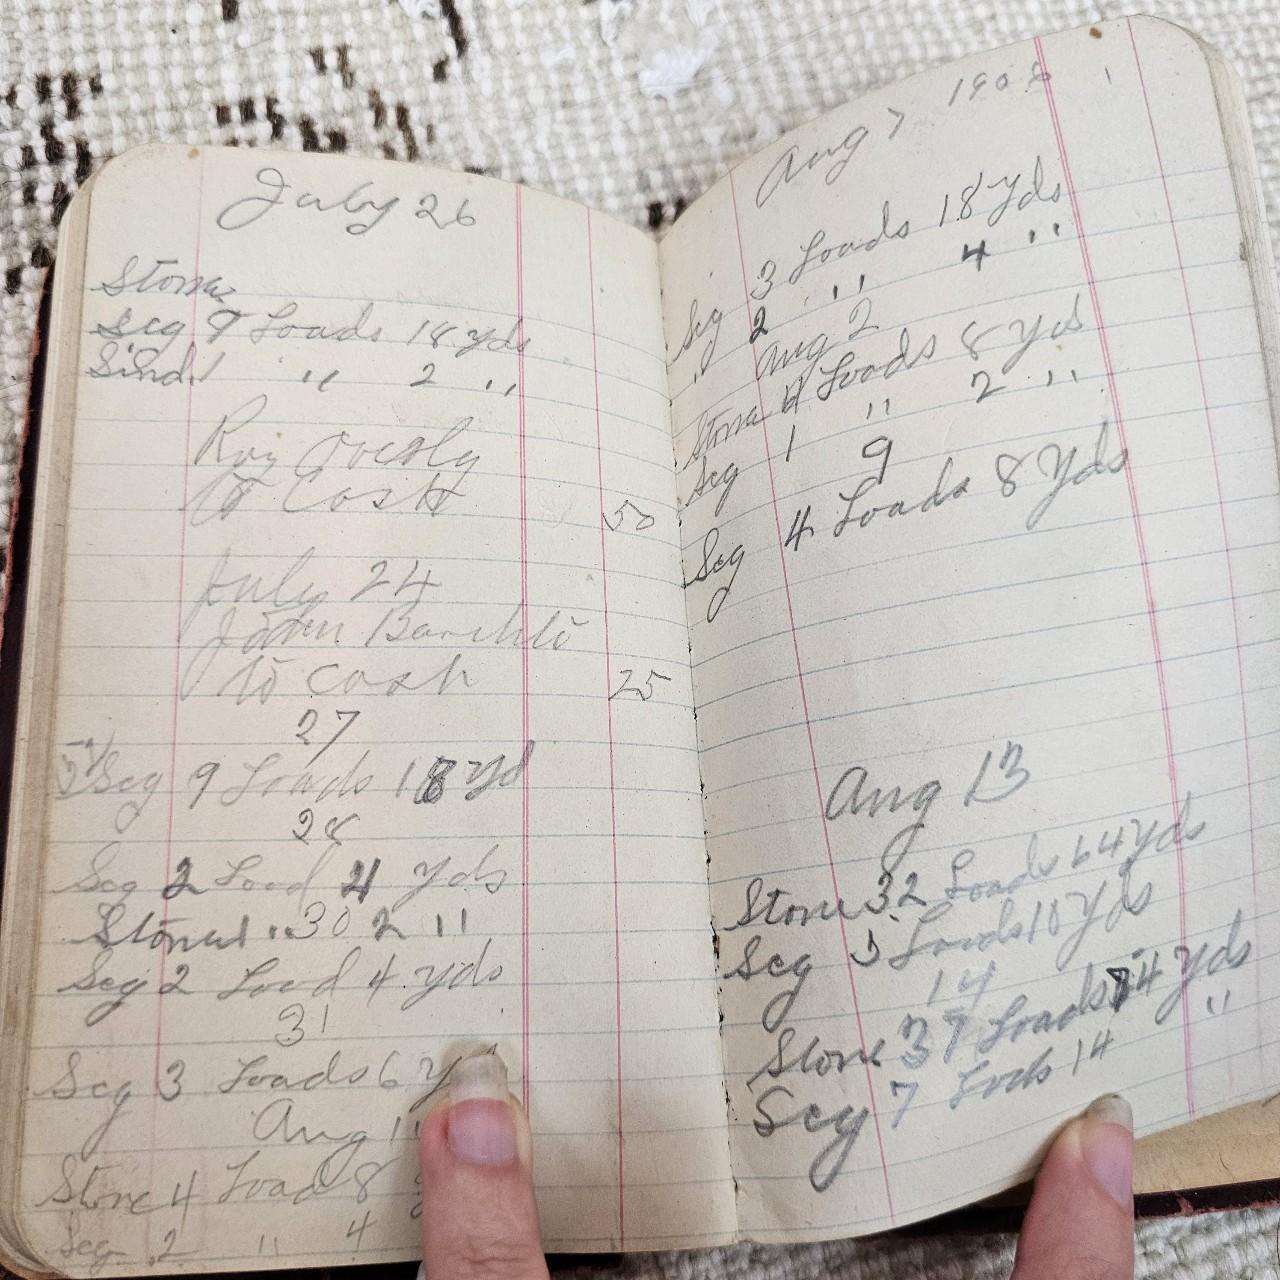 July 26
Stone
Scg 9 Loads 18 Yds
Sind 1 " 2 "
Roy
To Cash 50
July 24
John
to cash 25
27
Scg 9 Loads 18 Yd
28
Scg 2 Load 4 Yds
Stone 1 " 30 2 "
Scg 2 Load 4 Yds
31
Scg 3 Loads 6
Aug 1
Stone 4 Load 8
Scg 2 " 4
Aug 7 1908
Scg 3 Loads 18 Yds
" 2 " 4 "
Aug 2
Stone 4 Loads 8 Yd
Scg 1 " 2 "
9
Scg 4 Loads 8 Yds
Aug 13
Stone 32 Loads 64 Yds
Scg 5 Loads 10 Yds
14
Stone 37 Loads 74 Yds
Scg 7 Lods 14 "